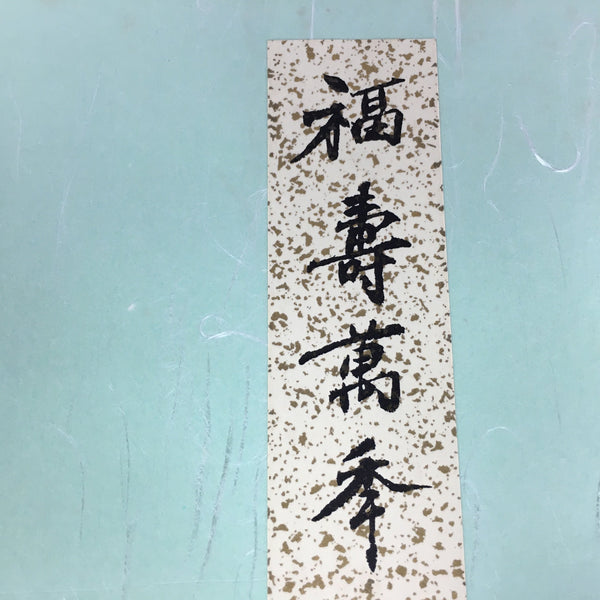 福壽萬季